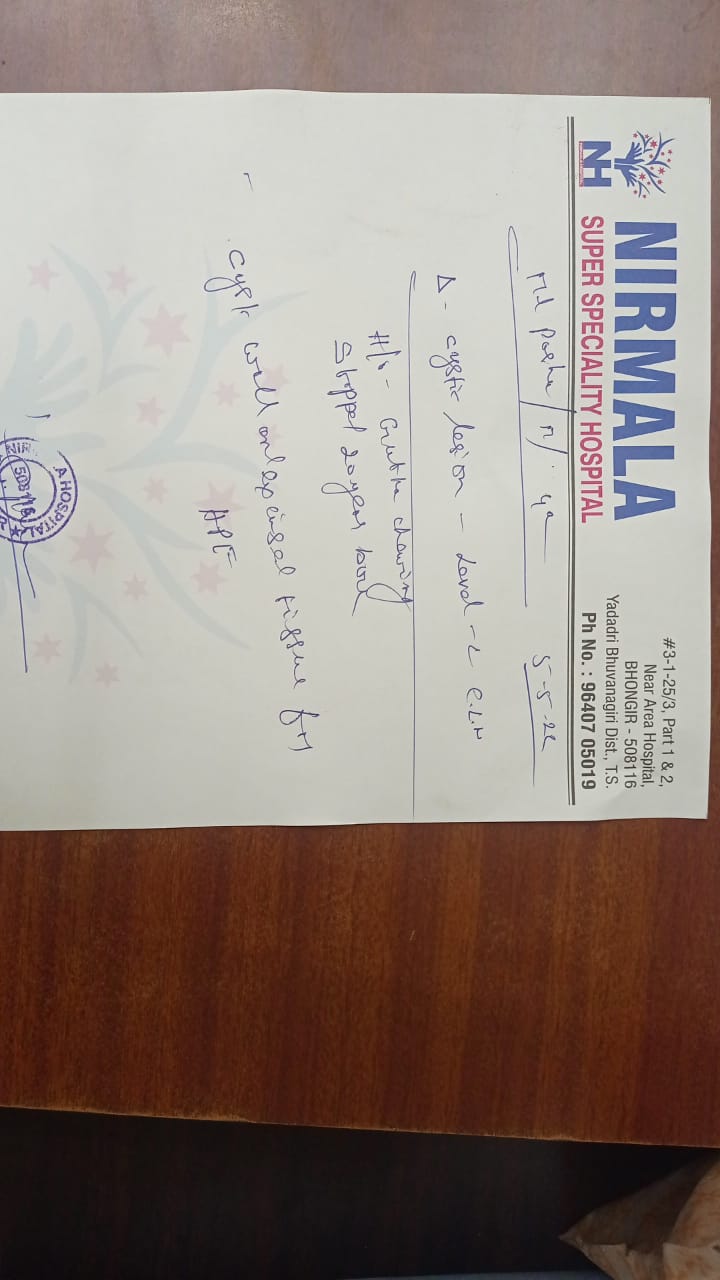 NH
NIRMALA
SUPER SPECIALITY HOSPITAL
#3-1-25/3, Part 1 & 2,
Near Area Hospital,
BHONGIR - 508116
Yadadri Bhuvanagiri Dist., T.S.
Ph No. : 96407 05019
Md Pasha / M /
Δ - cystic lesion - Level - 2
H/o - Gutka chewing
Stopped 2 years back
- cystic wall and excised tissue for
HPE
A HOSPITA
508116